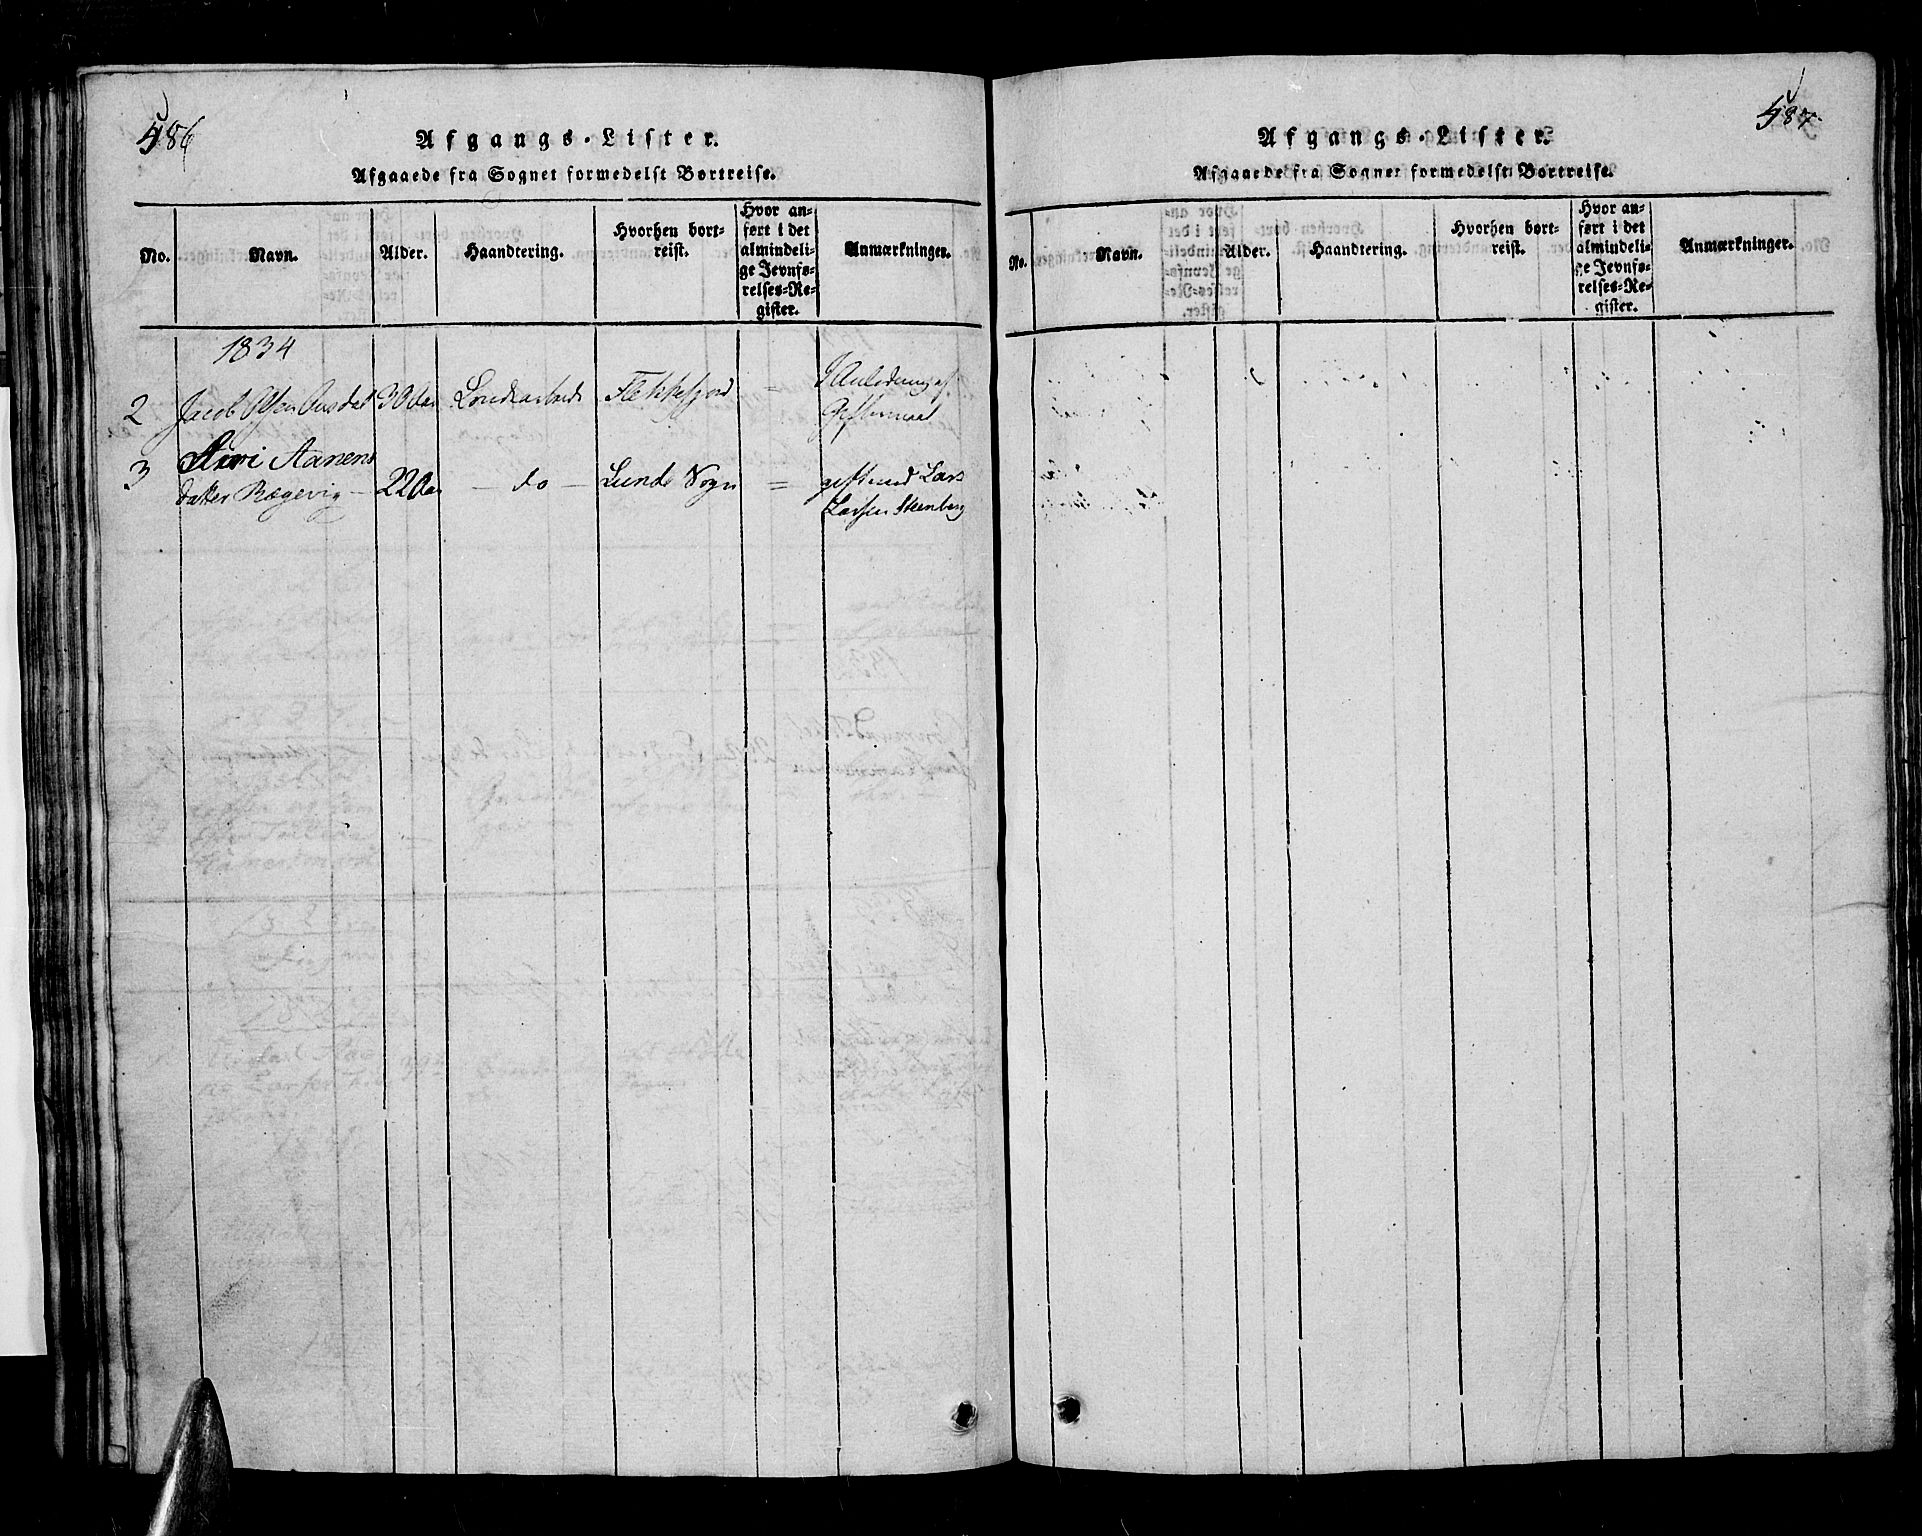 486
Afgangs-Lister.
Afgaaede fra Sognet formedelst Bortreise.
No.
Navn.
Alder.
Haandtering.
Hvorhen bort-
reist.
Hvor an-
ført i det
almindeli-
ge Jevnfø-
relses-Re-
gister.
Anmærkninger.
1834
2 Jacob Olsen 30 Aar Flekkefjord = I Anledning af
Giftermaal
3 Siri Aanens
datter Bøgevig - 22 Aar - do - Lunde Sogn = gift med Lars
Larsen Steenberg
487
Afgangs-Lister.
Afgaaede fra Sognet formedelst Bortreise.
No.
Navn.
Alder.
Haandtering.
Hvorhen bort-
reist.
Hvor an-
ført i det
almindeli-
ge Jevnfø-
relses-Re-
gister.
Anmærkninger.